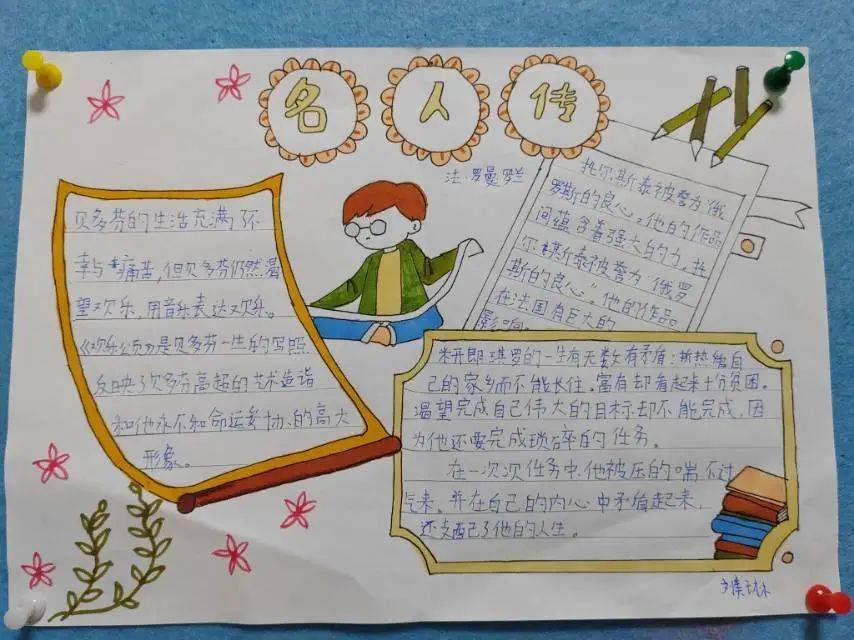 名人传
法:罗曼罗兰
贝多芬的生活充满了不
幸与痛苦,但贝多芬仍然渴
望欢乐,用音乐表达欢乐。
《欢乐颂》是贝多芬一生的写照
反映了贝多芬高超的艺术造诣
和他永不和命运妥协的高大
形象。
托尔斯泰被誉为"俄
罗斯的良心。他的作品
间蕴含着强大的力。托
尔斯泰被誉为"俄罗
斯的良心"。他的作品
在法国有巨大的
影响
米开朗琪罗的一生有无数矛盾:热
己的家乡而不能长住。富有却看起来十分贫困。
渴望完成自己伟大的目标却不能完成,因
为他还要完成琐碎的任务。
在一次次任务中,他被压的喘不过
气来。并在自己的内心中矛盾起来,
还支配了他的人生。